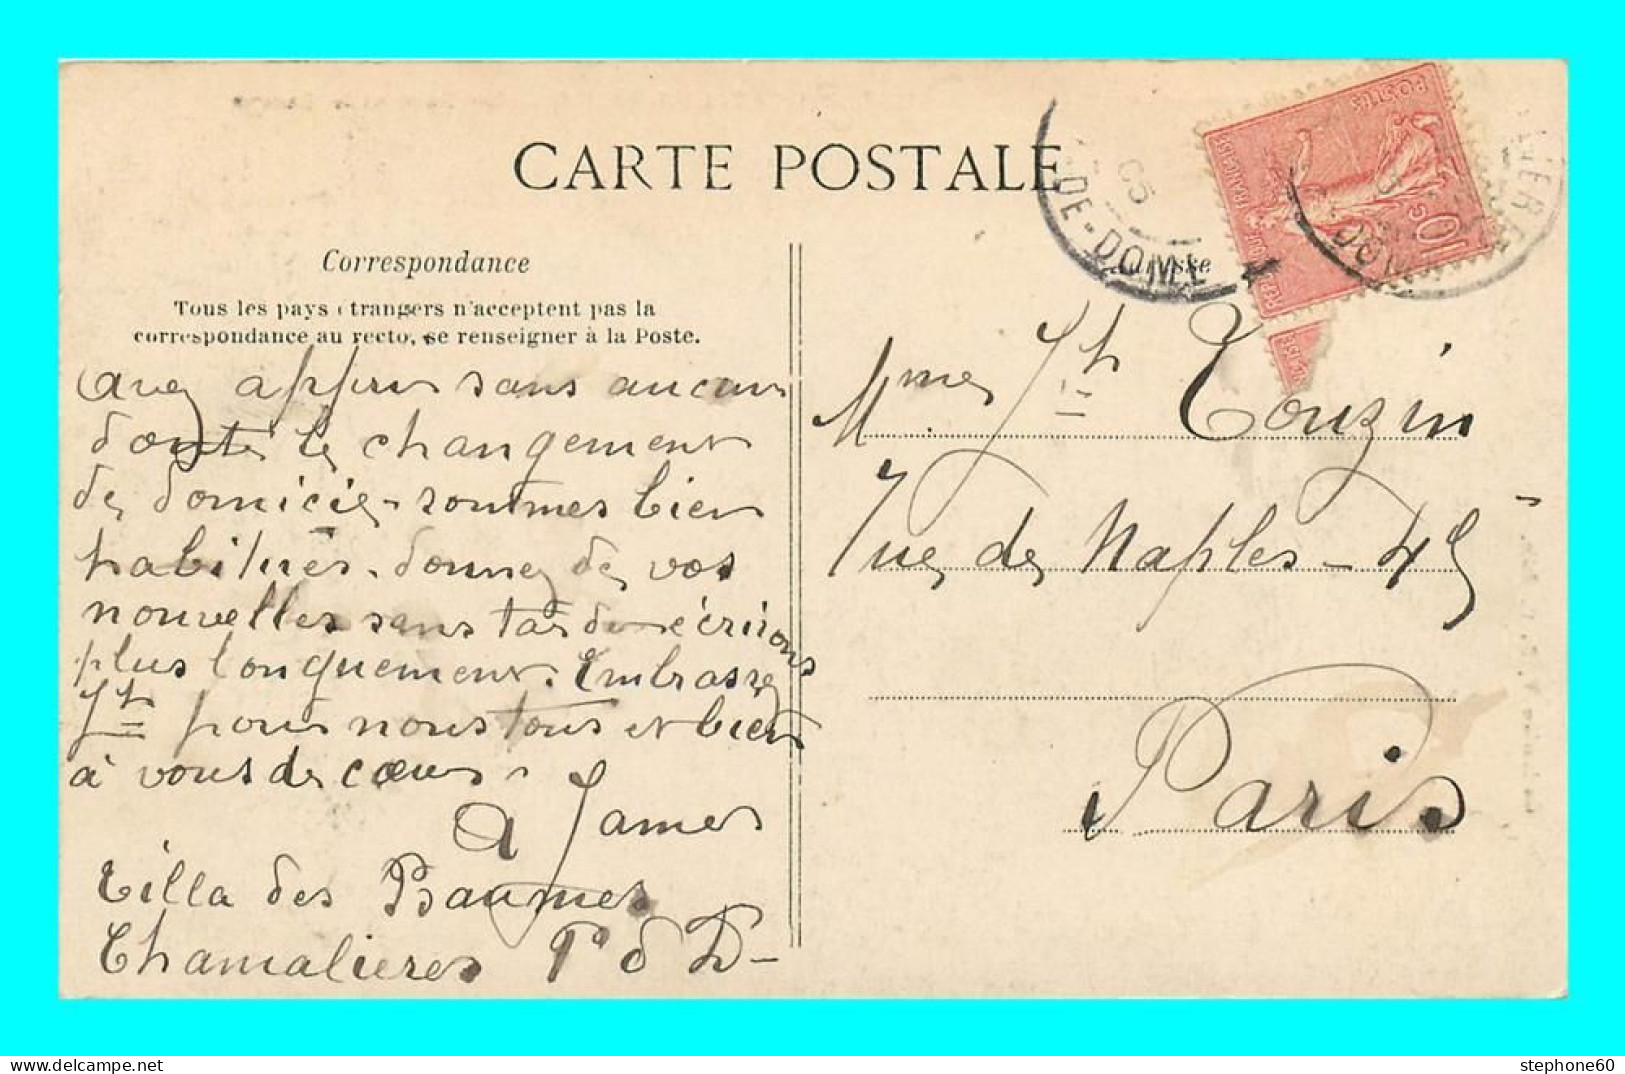 CARTE POSTALE
Correspondance
Tous les pays étrangers n'acceptent pas la
correspondance au recto, se renseigner à la Poste.
avez appris sans aucun
doute le changement
de domicile - sommes bien
habitués. donnez de vos
nouvelles sans tarder écrirons
plus longuement. Embrassez
Jth pour nous tous et bien
à vous de cœur.
A James
Villa des Baumes
Chamalieres P d D -
Adresse
Mmes Jth Touzin
rue de Naples - 45
Paris
DE-DOME
05
POSTES
10c
stephone60